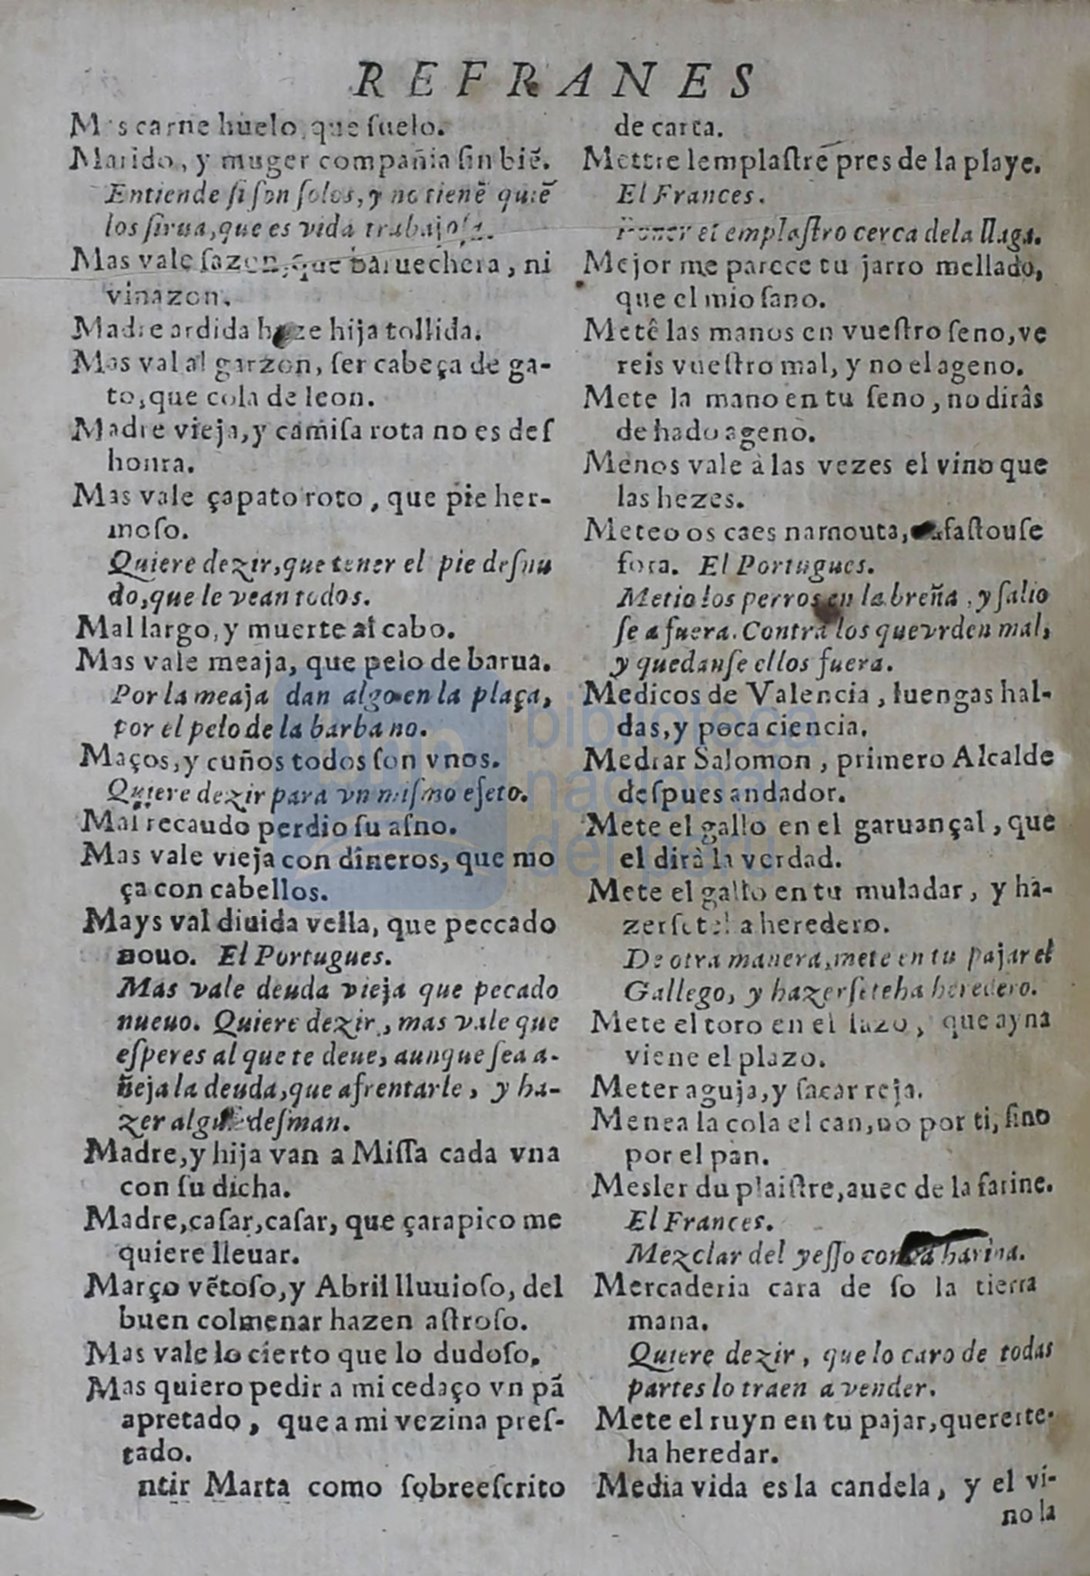 REFRANES
Mas carne huelo, que ſuelo.
Marido, y muger compañia ſin biẽ.
Entiende ſi ſon ſolos, y no tienẽ quiẽ
los ſirua, que es vida trabajoſa.
Mas vale ſazon, que baruechera, ni
vinazon.
Madre ardida haze hija tollida.
Mas val al garzon, ſer cabeça de ga-
to, que cola de leon.
Madre vieja, y camiſa rota no es deſ
honra.
Mas vale çapato roto, que pie her-
moſo.
Quiere dezir, que tener el pie deſnu
do, que le vean todos.
Mal largo, y muerte al cabo.
Mas vale meaja, que pelo de barua.
Por la meaja dan algo en la plaça,
por el pelo de la barba no.
Maços, y cuños todos ſon vnos.
Quiere dezir para vn miſmo efeto.
Mal recaudo perdio ſu aſno.
Mas vale vieja con dineros, que mo
ça con cabellos.
Mays val diuida vella, que peccado
nouo. El Portugues.
Mas vale deuda vieja que pecado
nueuo. Quiere dezir, mas vale que
eſperes al que te deue, aunque ſea a-
ñeja la deuda, que afrentarle, y ha-
zer deſman.
Madre, y hija van a Miſſa cada vna
con ſu dicha.
Madre, caſar, caſar, que çarapico me
quiere lleuar.
Março vẽtoſo, y Abril lluuioſo, del
buen colmenar hazen aſtroſo.
Mas vale lo cierto que lo dudoſo.
Mas quiero pedir a mi cedaço vn pã
apretado, que a mi vezina preſ-
tado.
ntir Marta como ſobreeſcrito
de carta.
Mettre lemplaſtre pres de la playe.
El Frances.
Poner el emplaſtro cerca de la llaga.
Mejor me parece tu jarro mellado,
que el mio ſano.
Metê las manos en vueſtro ſeno, ve
reis vueſtro mal, y no el ageno.
Mete la mano en tu ſeno, no dirâs
de hado ageno.
Menos vale à las vezes el vino que
las hezes.
Meteo os caes na mouta, afaſtouſe
fora. El Portugues.
Metio los perros en la breña, y ſalio
ſe a fuera. Contra los que vrden mal,
y quedanſe ellos fuera.
Medicos de Valencia, luengas hal-
das, y poca ciencia.
Medrar Salomon, primero Alcalde
deſpues andador.
Mete el gallo en el garuançal, que
el dirà la verdad.
Mete el gallo en tu muladar, y ha-
zerſete ha heredero.
De otra manera, mete en tu pajar el
Gallego, y hazerſeteha heredero.
Mete el toro en el lazo, que ayna
viene el plazo.
Meter aguja, y ſacar reja.
Menea la cola el can, no por ti, ſino
por el pan.
Mesler du plaiſtre, auec de la farine.
El Frances.
Mezclar del yeſſo con la harina.
Mercaderia cara de ſo la tierra
mana.
Quiere dezir, que lo caro de todas
partes lo traen a vender.
Mete el ruyn en tu pajar, quererte-
ha heredar.
Media vida es la candela, y el vi-
no la
biblioteca
nacional
del perú